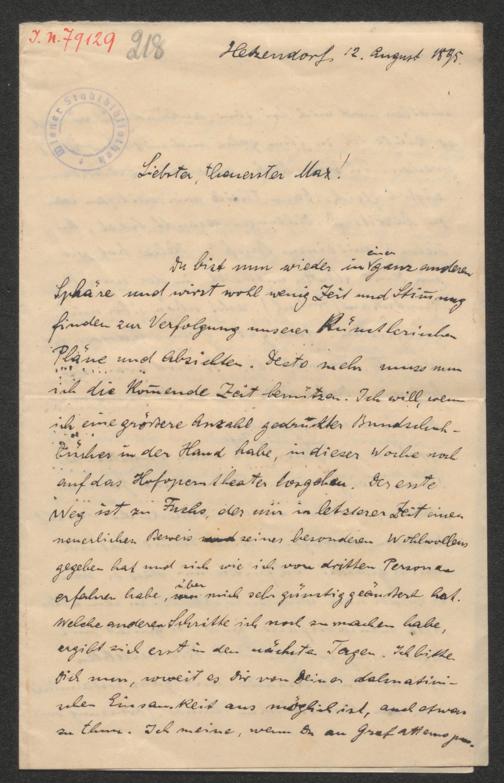 I. N. 79129
218
Hetzendorf, 12. August 1895.
Wiener Stadtbibliothek
Liebster, theuerster Max!
Du bist nun wieder in einer ganz anderen
Sphäre und wirst wohl wenig Zeit und Stimmung
finden zur Verfolgung unserer Künstlerischen
Pläne und Absichten. Desto mehr muss nun
ich die kommende Zeit benützen. Ich will, wenn
ich eine größere Anzahl gedruckter Bundschuh-
Bücher in der Hand habe, in dieser Woche noch
auf das Hofoperntheater losgehen. Der erste
Weg ist zu Fuchs, der mir in letzterer Zeit einen
neuerlichen Beweis seines besonderen Wohlwollens
gegeben hat und sich wie ich von dritten Personen
erfahren habe, über mich sehr günstig geäussert hat.
Welche anderen Schritte ich noch zu machen habe,
ergibt sich erst in den nächsten Tagen. Ich bitte
Dich nun, soweit es Dir von Deiner dalmatini-
schen Einsamkeit aus möglich ist, auch etwas
zu thun. Ich meine, wenn Du an Graf Attems